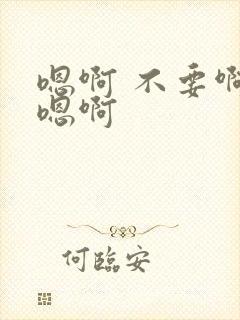 嗯啊 不要啊
嗯啊
何臨安